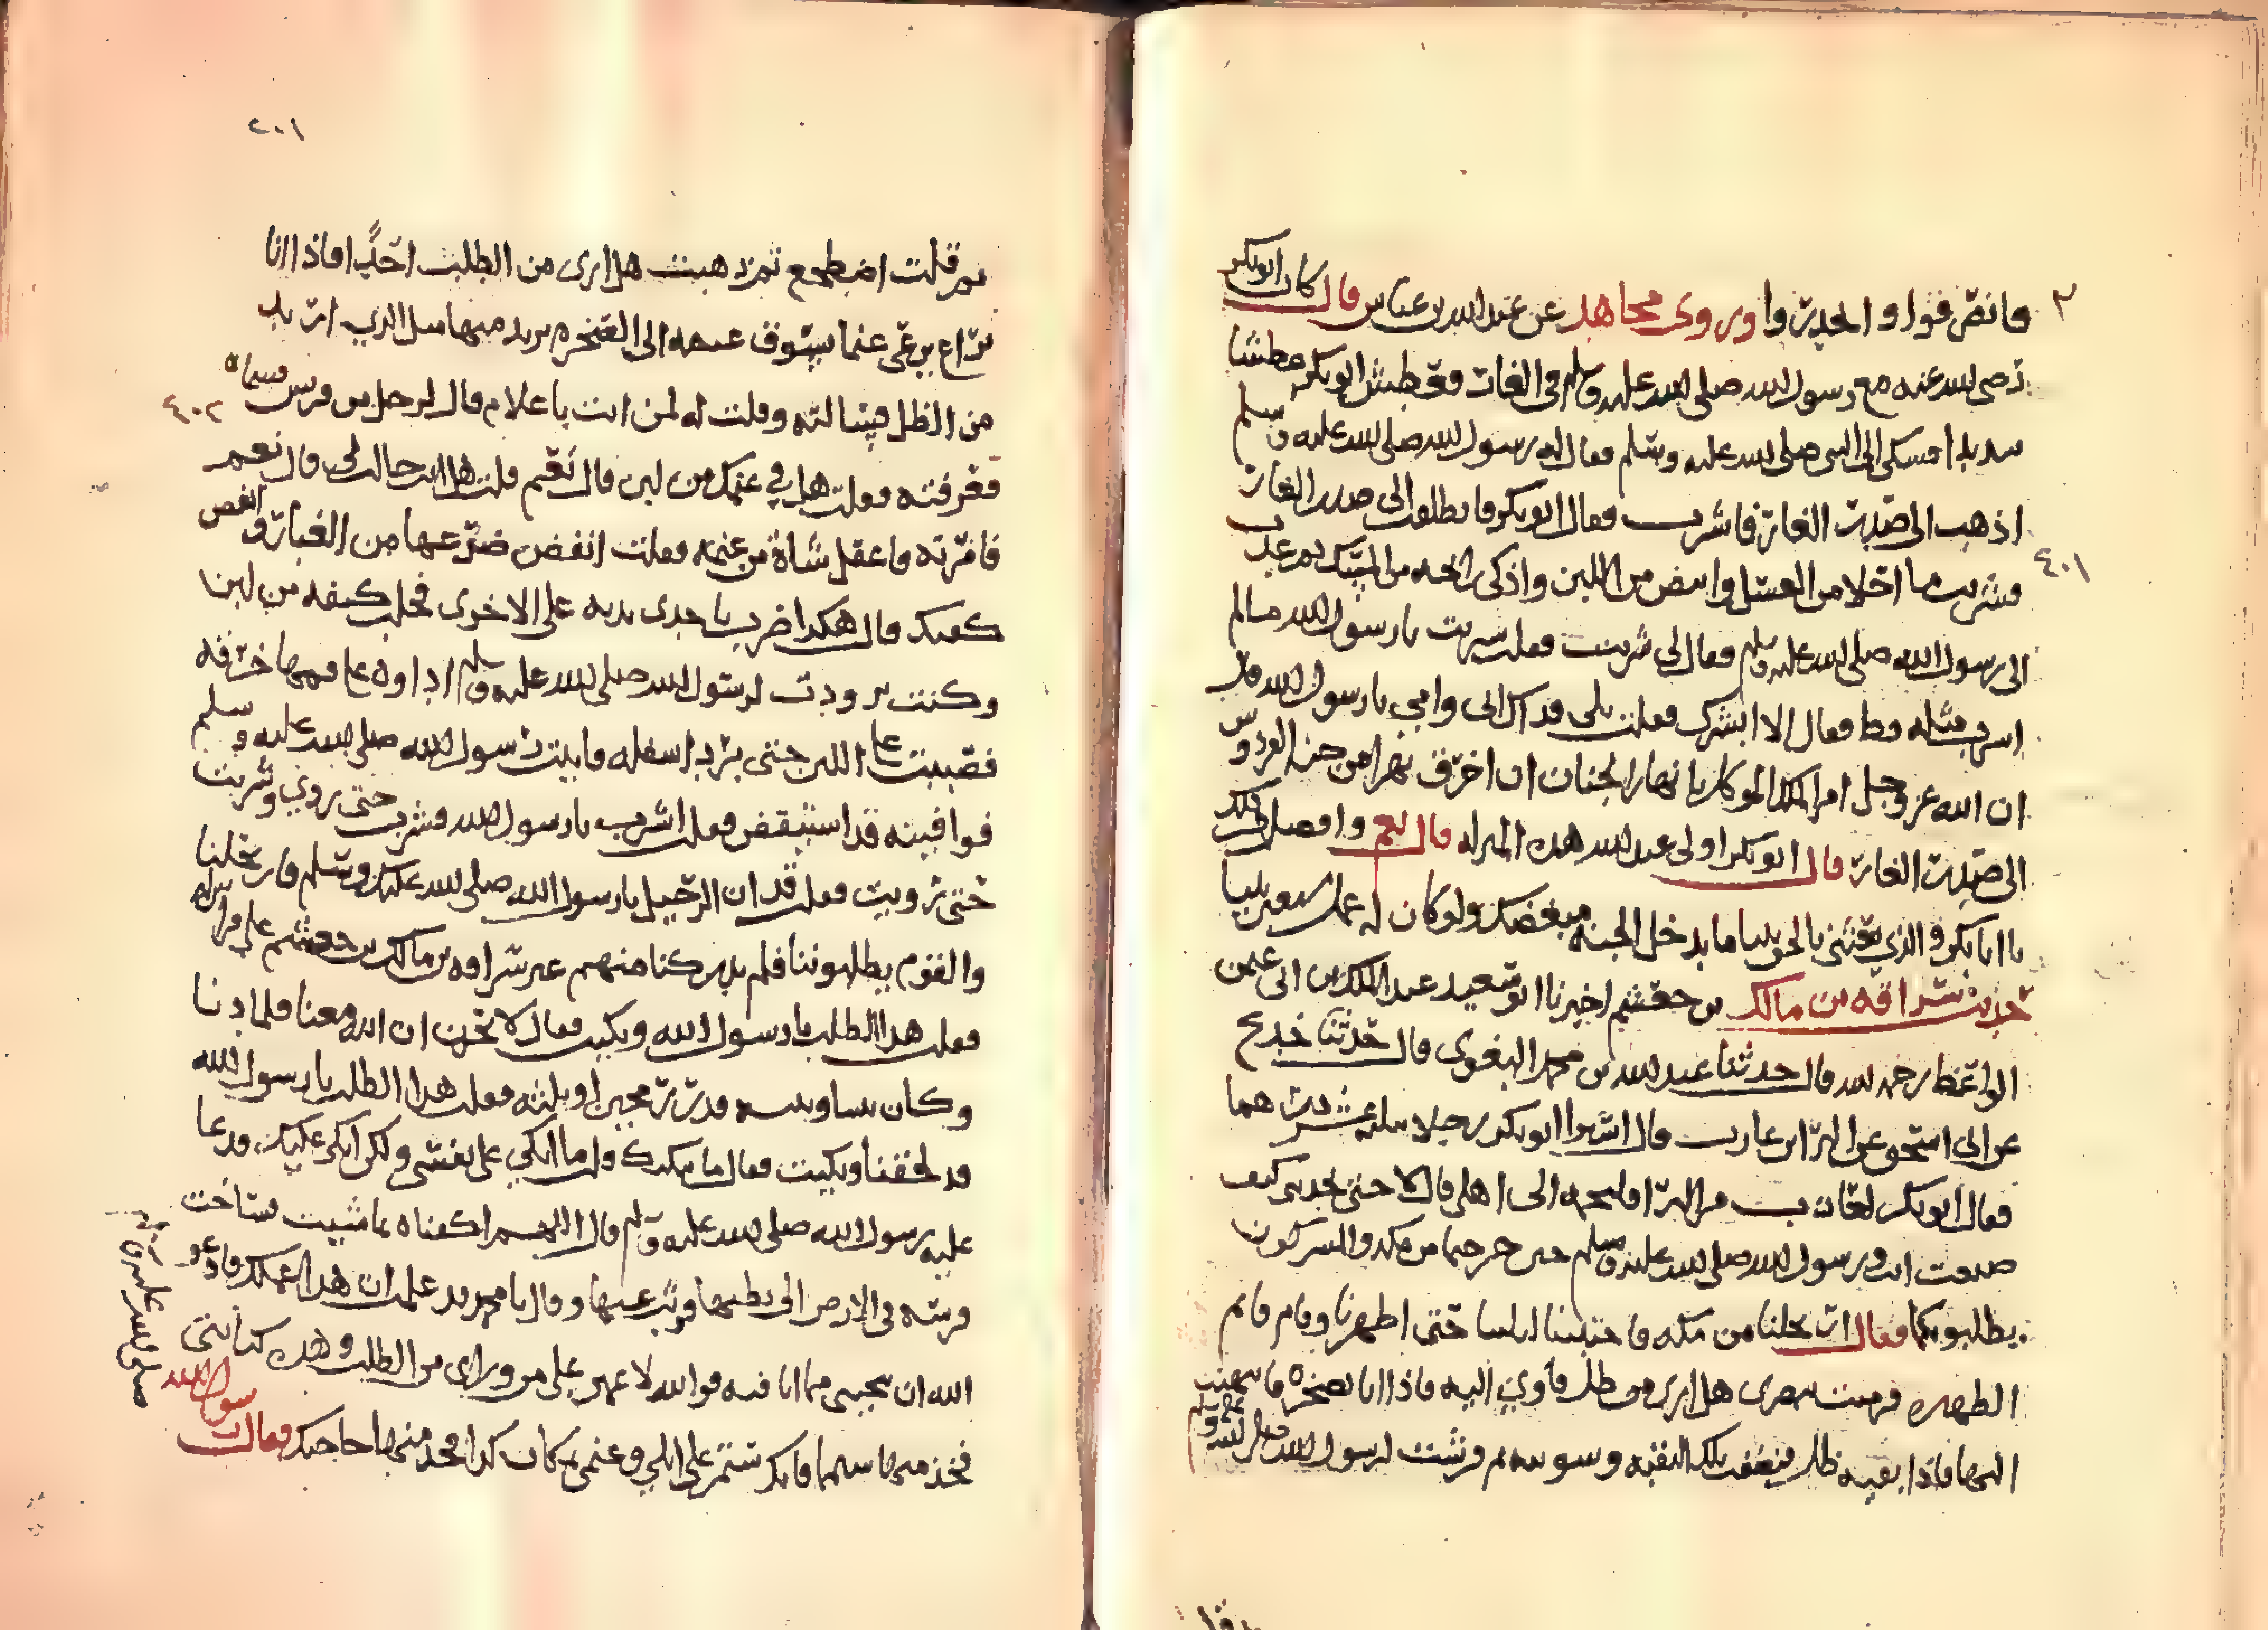 فانصرفوا والحديث واوروى مجاهد عن عبد الله بن عباس قال كان ابو بكر
رضى الله عنه مع رسول الله صلى الله عليه وسلم فى الغار فعطش ابو بكر عطشا
سديدا فسكى الى النبى صلى الله عليه وسلم فقال له رسول الله صلى الله عليه وسلم
اذهب الى صدر الغار فاشرب فقال ابو بكر فانطلقت الى صدر الغار
فشربت ما احلا من العسل وابيض من اللبن واذكى رائحه من المسك ثم عدت
الى رسول الله صلى الله عليه وسلم فقال لى شربت فقلت شربت يا رسول الله ما لم
اشرب مثله قط فقال الا ابشرك فقلت بلى فداك ابى وامى يا رسول الله قال
ان الله عز وجل امر الملك الموكل بانهار الجنان ان اخرق نهرا من جنه الفردوس
الى صدر الغار قال ابو بكر اولى عند الله هذه المنزله قال نعم وافضل
يا ابا بكر والذي بعثنى بالحق نبيا ما يدخل الجنه مبغضك ولو كان له عمل سبعين نبيا
حديث سراقه بن مالك بن جعشم اخبرنا ابو سعيد عبد الملك بن ابى عثمن
الواعظ رحمه الله قال حدثنا عبد الله بن محمد البغوى قال حدثنا خديج
عن ابى اسحق عن البرا بن عازب قال اشترا ابو بكر رحلا بثلثه عشر درهما
فقال ابو بكر لعازب مر البرا فليحمله الى اهلى قال لا حتى تحدثنى كيف
صنعت انت ورسول الله صلى الله عليه وسلم حين خرجتما من مكه والمشركون
يطلبونكما فقال ارتحلنا من مكه فاحتبسنا ليلتنا حتى اظهرنا وقام قائم
الظهيره فرميت ببصرى هل ارى من ظل فآوي اليه فاذا انا بصخره فانتهيت
اليها فاذا بقيه ظلها فنظفت تلك البقيه وسويته ثم فرشت لرسول الله صلى الله عليه وسلم
٣
٤٠١
٢٠١
ثم قلت اضطجع ثم ذهبت هل ارى من الطلب احدًا فاذا انا
براع يرعى غنما يسوق غنمه الى الصخره يريد منها مثل الذي اريد
من الظل فسالته وقلت له لمن انت يا غلام قال لرجل من قريش فسماه
فعرفته فقلت هل في غنمك من لبن قال نعم قلت هل انت حالب لى قال نعم
فامرته فاعقل شاة من غنمه فقلت انفض ضرعها من الغبار وانفض
كفيك قال هكذا ضرب باحدى يديه على الاخرى فحلب كثفه من لبن
وكنت رويت لرسول الله صلى الله عليه وسلم اداوه على فمها خرقه
فصببت على اللبن حتى برد اسفله فاتيت رسول الله صلى الله عليه وسلم
فوافيته قد استيقض فقلت اشرب يا رسول الله فشرب حتى روي وشربت
حتى رويت فقلت قد ان الرحيل يا رسول الله صلى الله عليك وسلم فارتحلنا
والقوم يطلبوننا فلم يدركنا منهم غير سراقه بن مالك بن جعشم على فرس له
فقلت هذا الطلب يا رسول الله وبكيت فقال لا تحزن ان الله معنا فلما دنا
وكان بيننا وبينه قدر رمحين او ثلثه فقلت هذا الطلب يا رسول الله
قد لحقنا وبكيت فقال ما يبكيك قلت ما ابكي على نفسى ولكن ابكى عليك فدعا
عليه رسول الله صلى الله عليه وسلم قال اللهم اكفناه بما شيت فساخت
فرسه فى الارض الى بطنها فوثب عنها وقال يا محمد قد علمت ان هذا عملك فادعو
الله ان ينجينى مما انا فيه فوالله لاعمين على من وراى من الطلب وهذه كنانتى
فخذ منها سهما فانك ستمر على ابلي وغنمى بمكان كذا فخذ منها حاجتك فقال رسول الله
صلى الله عليه وسلم
٤٠٢